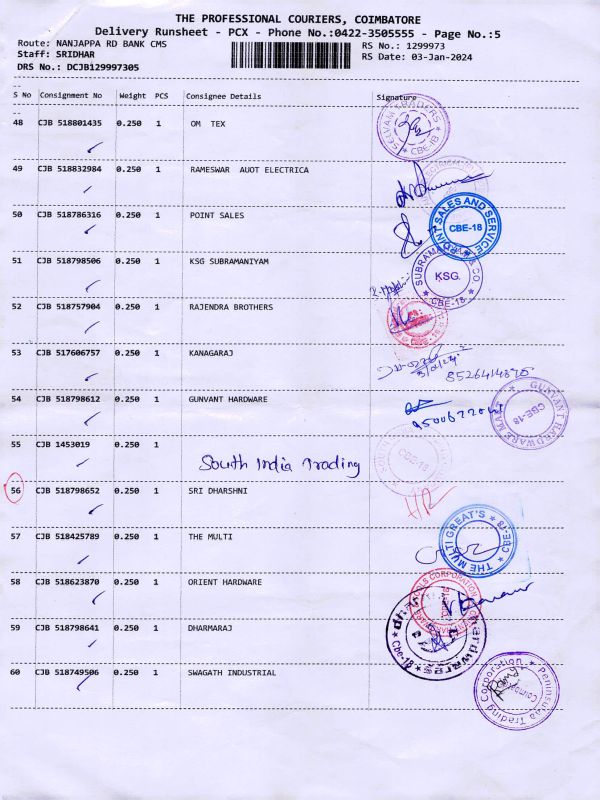 THE PROFESSIONAL COURIERS, COIMBATORE
Delivery Runsheet - PCX - Phone No.:0422-3505555 - Page No.:5
Route: NANJAPPA RD BANK CMS RS No.: 1299973
Staff: SRIDHAR RS Date: 03-Jan-2024
DRS No.: DCJB129997305
S No Consignment No Weight PCS Consignee Details Signature
48 CJB 518801435 0.250 1 OM TEX
SELVAM TRADERS CBE-18
49 CJB 518832984 0.250 1 RAMESWAR AUOT ELECTRICA
50 CJB 518786316 0.250 1 POINT SALES
POINT SALES AND SERVICE CBE-18
51 CJB 518798506 0.250 1 KSG SUBRAMANIYAM
KSG. CBE-18
52 CJB 518757904 0.250 1 RAJENDRA BROTHERS
53 CJB 517606757 0.250 1 KANAGARAJ
54 CJB 518798612 0.250 1 GUNVANT HARDWARE
GUNVANT HARDWARE MART CBE-18
55 CJB 1453019 0.250 1
South India Trading
CBE-18
56 CJB 518798652 0.250 1 SRI DHARSHNI
57 CJB 518425789 0.250 1 THE MULTI
THE MULTI GREAT'S CBE-18
58 CJB 518623870 0.250 1 ORIENT HARDWARE
59 CJB 518798641 0.250 1 DHARMARAJ
Cbe-18
60 CJB 518749506 0.250 1 SWAGATH INDUSTRIAL
Peninsula Trading Corporation